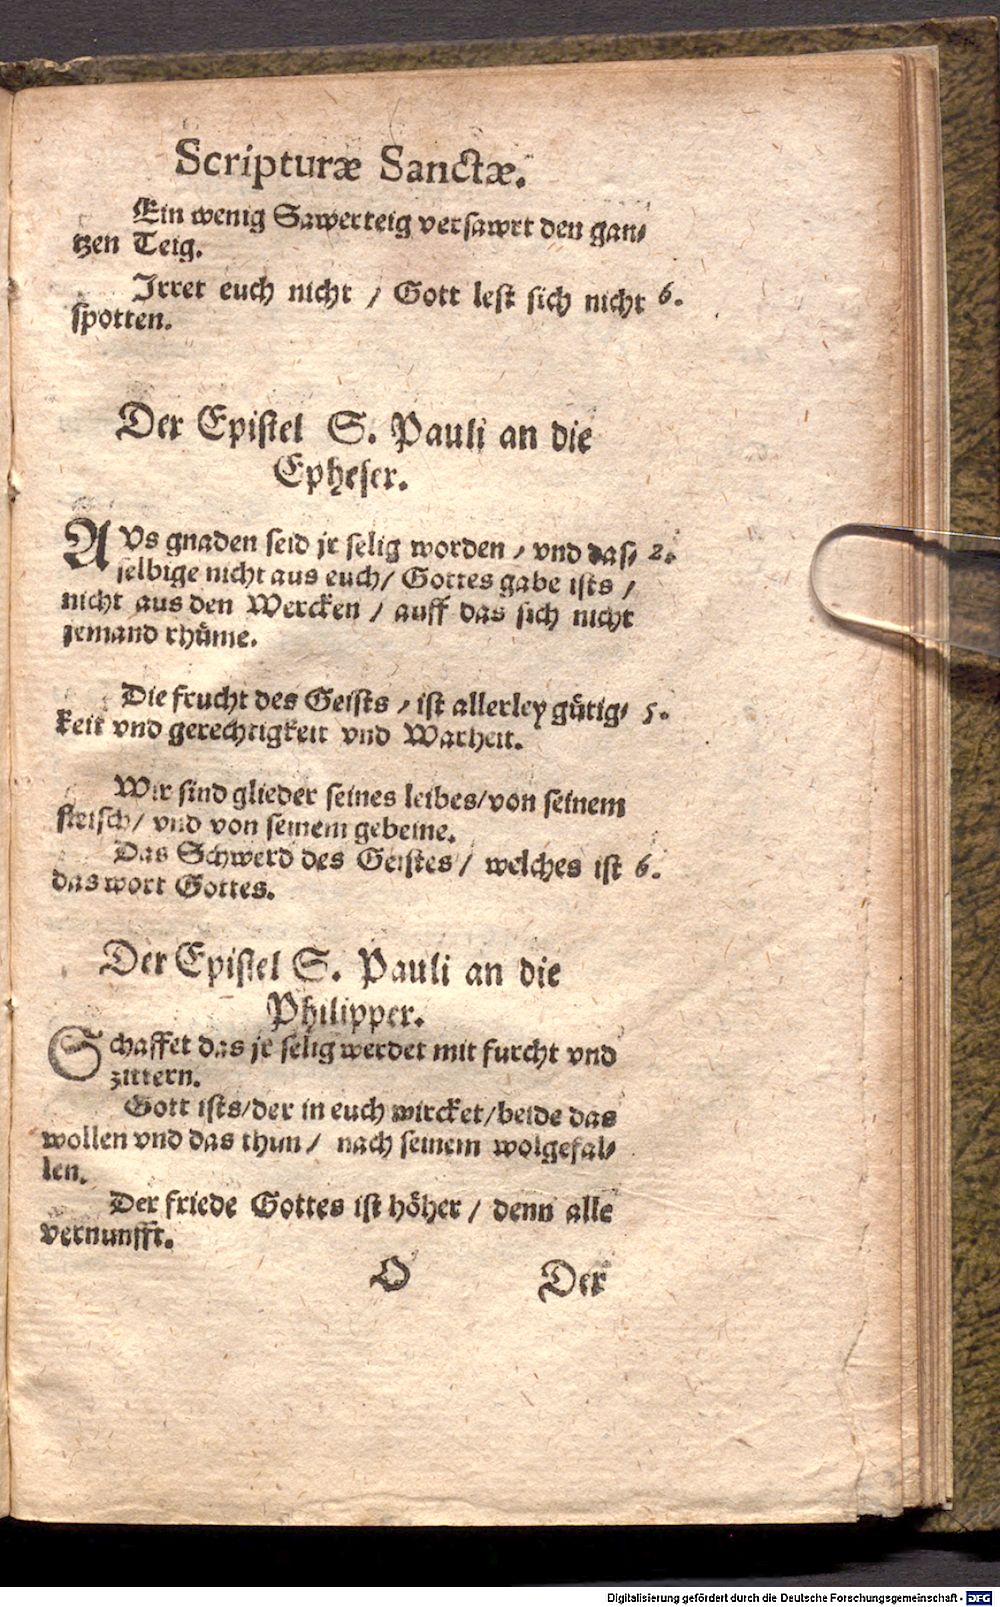 Scripturæ Sanctæ.
Ein wenig Sawerteig versawrt den gan⸗
tzen Teig.
Irret euch nicht / Gott lest sich nicht 6.
spotten.
Der Epistel S. Pauli an die
Epheser.
AVs gnaden seid jr selig worden / vnd das⸗ 2.
selbige nicht aus euch / Gottes gabe ists /
nicht aus den Wercken / auff das sich nicht
jemand rhüme.
Die frucht des Geists / ist allerley gütig⸗ 5.
keit vnd gerechtigkeit vnd Warheit.
Wir sind glieder seines leibes / von seinem
fleisch / vnd von seinem gebeine.
Das Schwerd des Geistes / welches ist 6.
das wort Gottes.
Der Epistel S. Pauli an die
Philipper.
Schaffet das jr selig werdet mit furcht vnd
zittern.
Gott ists / der in euch wircket / beide das
wollen vnd das thun / nach seinem wolgefal⸗
len.
Der friede Gottes ist höher / denn alle
vernunfft.
O Der
Digitalisierung gefördert durch die Deutsche Forschungsgemeinschaft - DFG